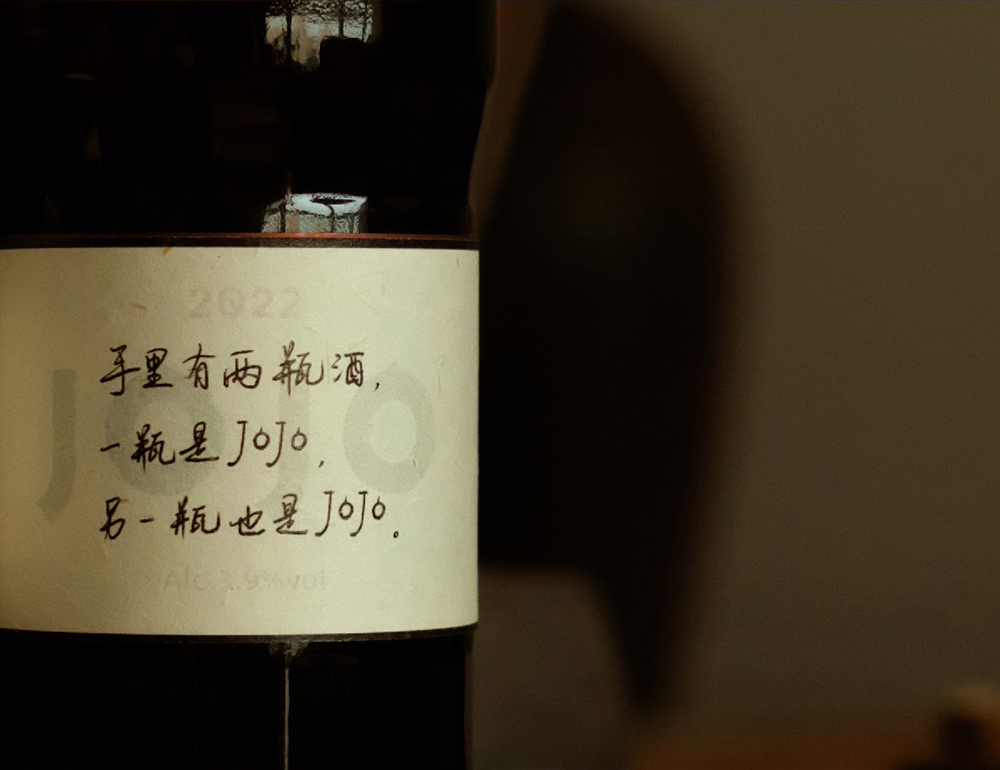 2022
手里有两瓶酒，
一瓶是JOJO，
另一瓶也是JOJO。
JOJO